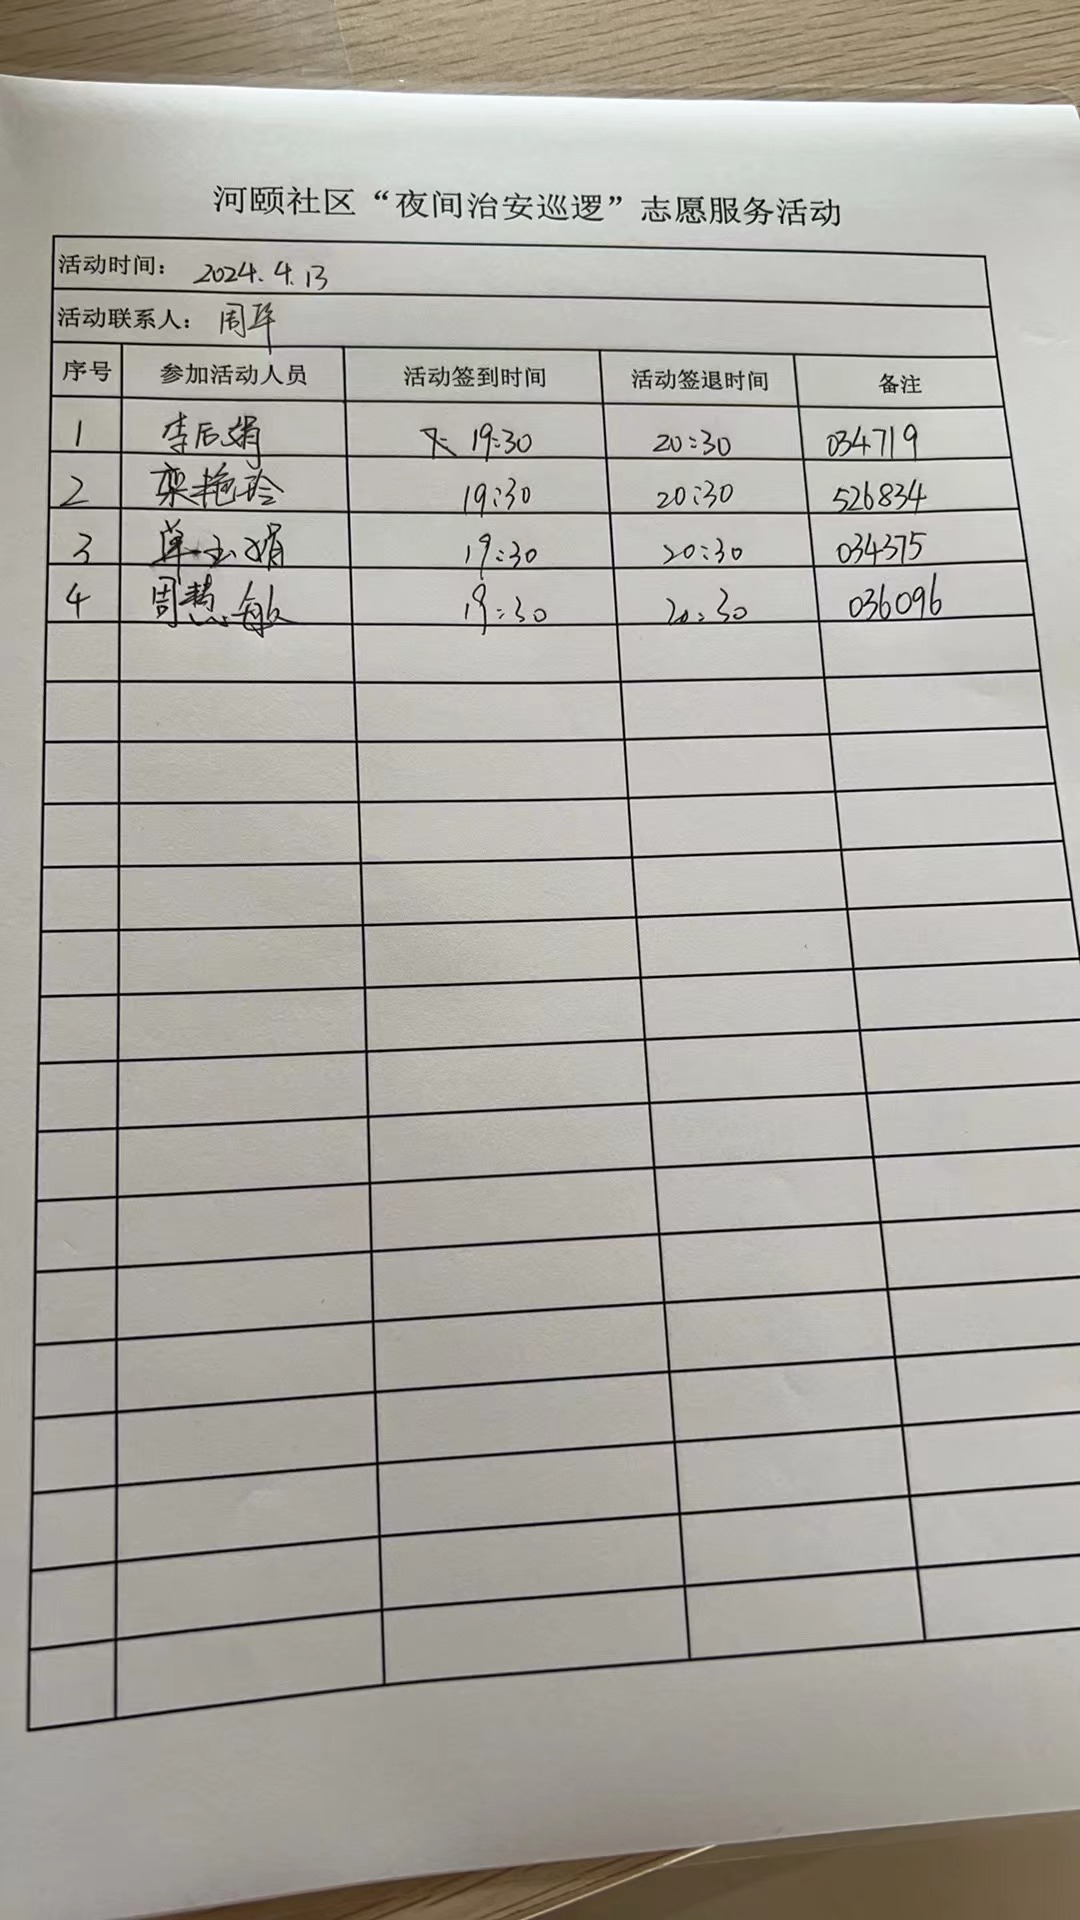 河颐社区“夜间治安巡逻”志愿服务活动
活动时间： 2024.4.13
活动联系人： 周华
序号 参加活动人员 活动签到时间 活动签退时间 备注
1 李后娟 19:30 20:30 034719
2 梁艳玲 19:30 20:30 526834
3 单玉娟 19:30 20:30 034375
4 周慧敏 19:30 20:30 036096